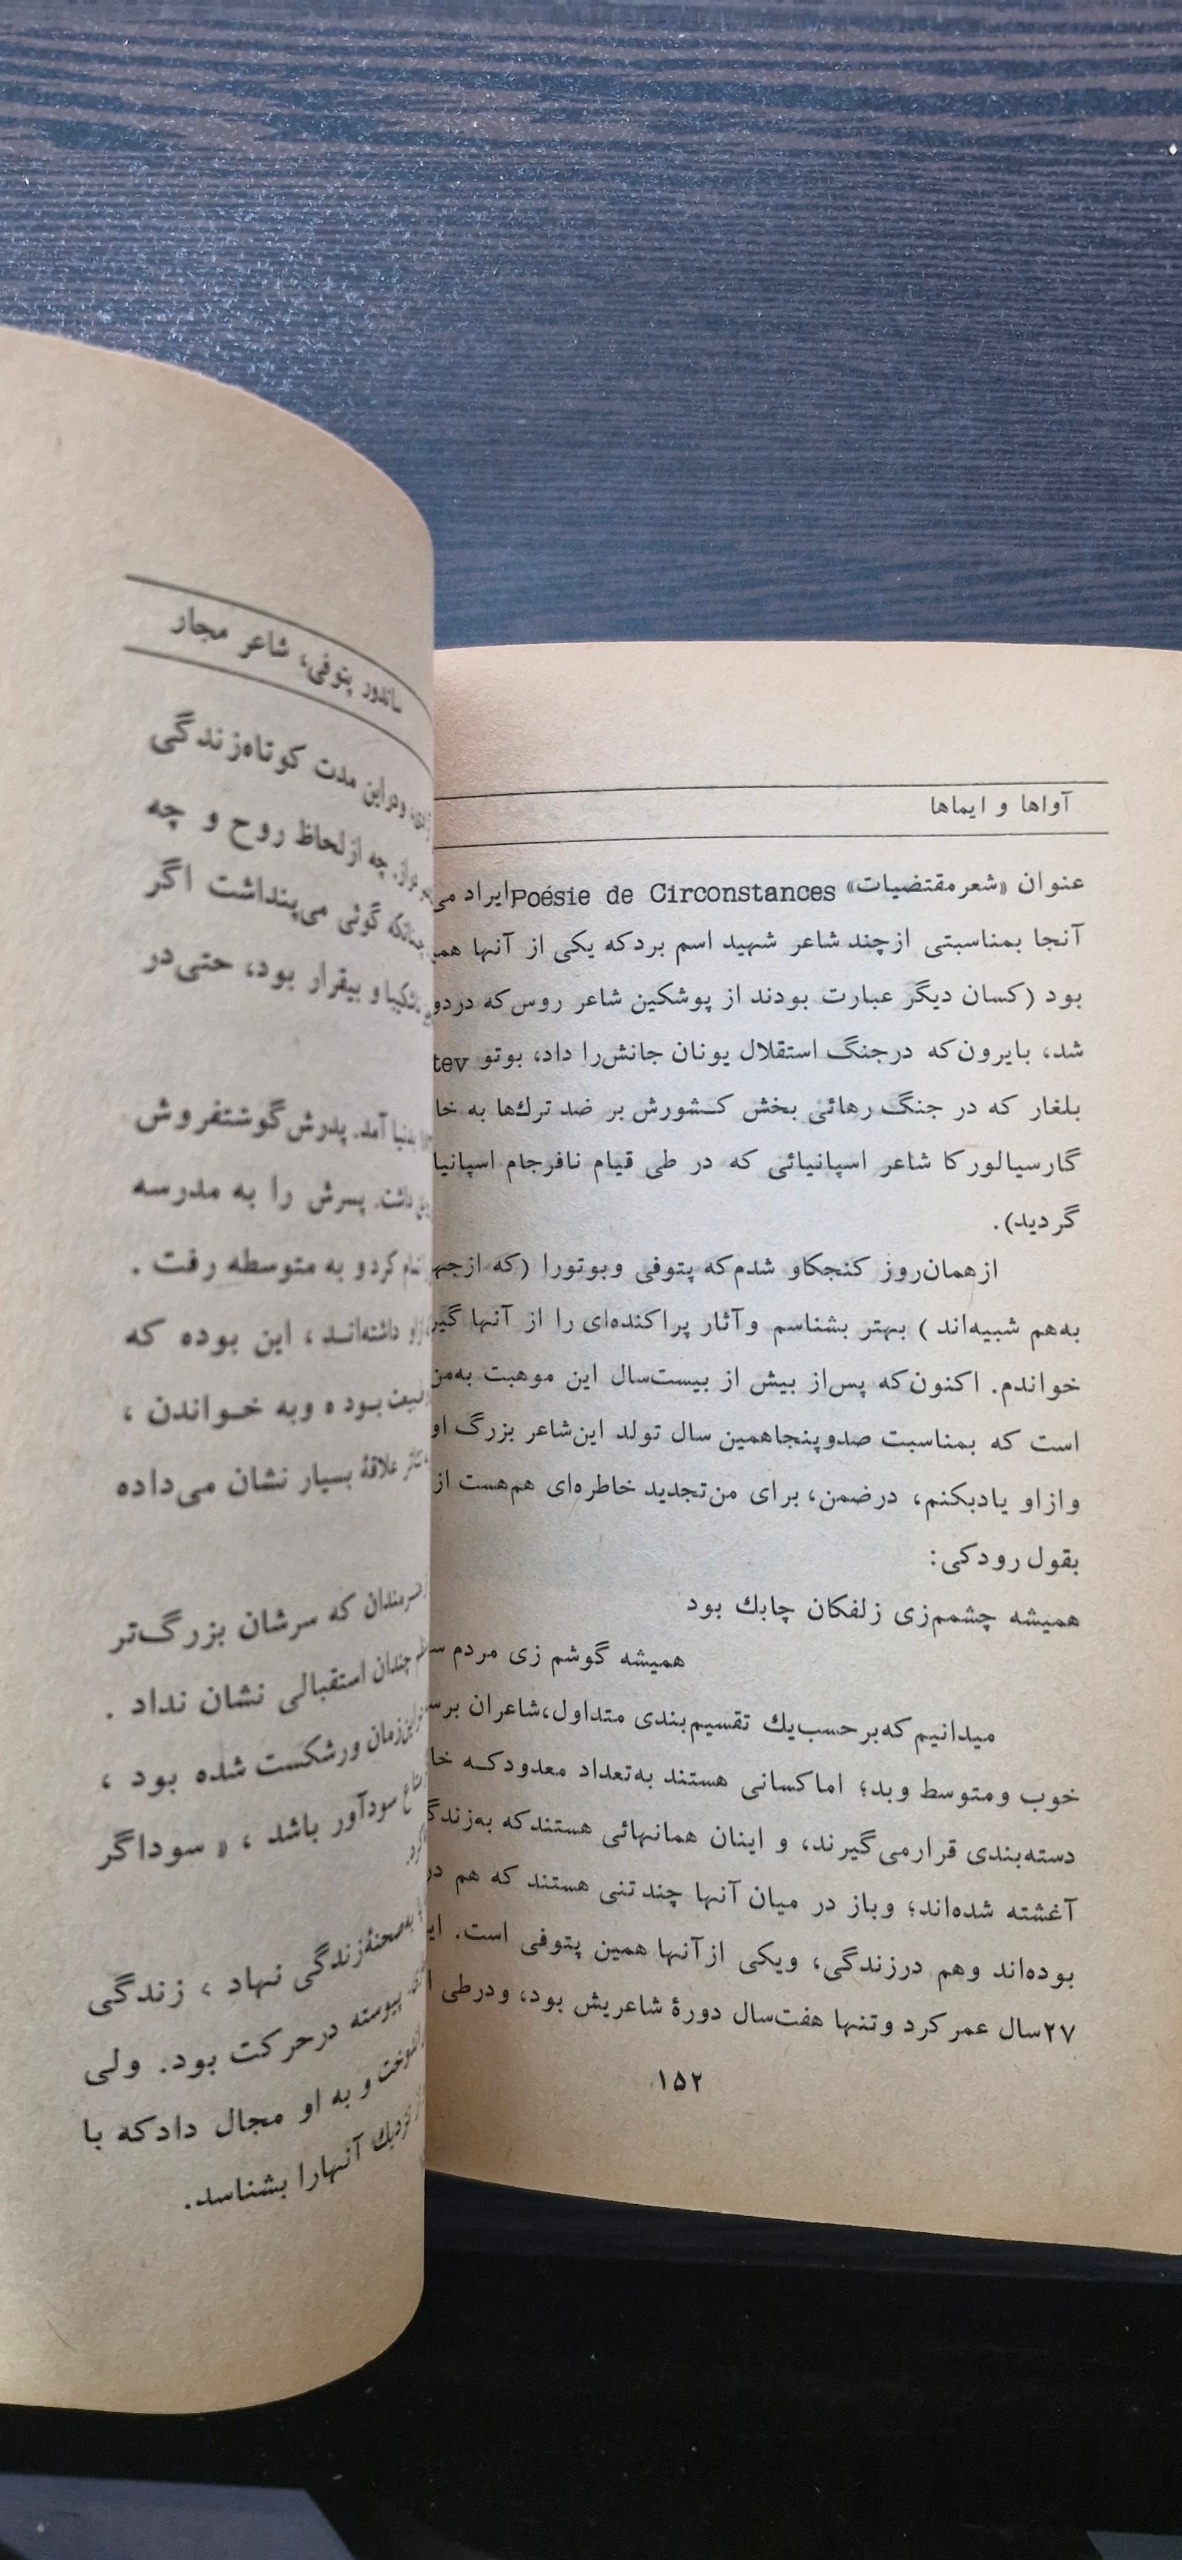 آواها و ایماها
عنوان «شعرمقتضیات» Poésie de Circonstances ایراد می
آنجا بمناسبتی ازچند شاعر شهید اسم بردکه یکی از آنها
بود (کسان دیگر عبارت بودند از پوشکین شاعر روس‌که
شد، بایرون‌که درجنگ استقلال یونان جانش‌را داد، بوتو tev
بلغار که در جنگ رهائی بخش کـشورش بر ضد ترك‌ها به
گارسیالورکا شاعر اسپانیائی که در طی قیام نافرجام
گردید).
ازهمان‌روز کنجکاو شدم‌که پتوفی وبوتورا (که
به‌هم شبیه‌اند ) بهتر بشناسم وآثار پراکنده‌ای را از آنها
خواندم. اکنون‌که پس‌از بیش از بیست‌سال این موهبت
است که بمناسبت صدوپنجاهمین سال تولد این‌شاعر بزرگ
وازاو یادبکنم، درضمن، برای من‌تجدید خاطره‌ای هم‌هست از
بقول رودکی:
همیشه چشمم‌زی زلفکان چابك بود
همیشه گوشم زی مردم
میدانیم که‌برحسب‌یك تقسیم‌بندی متداول،شاعران
خوب ومتوسط وبد؛ اماکسانی هستند به‌تعداد معدودکـه
دسته‌بندی قرارمی‌گیرند، و اینان همانهائی هستندکه
آغشته شده‌اند؛ وباز در میان آنها چندتنی هستند که هم در
بوده‌اند وهم درزندگی، ویکی ازآنها همین پتوفی است.
۲۷سال عمرکرد وتنها هفت‌سال دورۀ شاعریش بود، ودرطی
۱۵۲
ساندور پتوفی، شاعر مجار
ودراین مدت کوتاه‌زندگی
چه ازلحاظ روح و چه
چنانکه گوئی می‌پنداشت اگر
و بیقرار بود، حتی‌در
بدنیا آمد. پدرش‌گوشتفروش
داشت. پسرش را به مدرسه
کردو به متوسطه رفت .
داشته‌انـد ، این بوده که
بـوده وبه خـواندن ،
علاقۀ بسیار نشان می‌داده
که سرشان بزرگ‌تر
چندان استقبالی نشان نداد .
ورشکست شده بود ،
سودآور باشد ، « سوداگر
به‌صحنۀزندگی نهاد ، زندگی
پیوسته درحرکت بود. ولی
و به او مجال دادکه با
نزدیك آنهارا بشناسد.